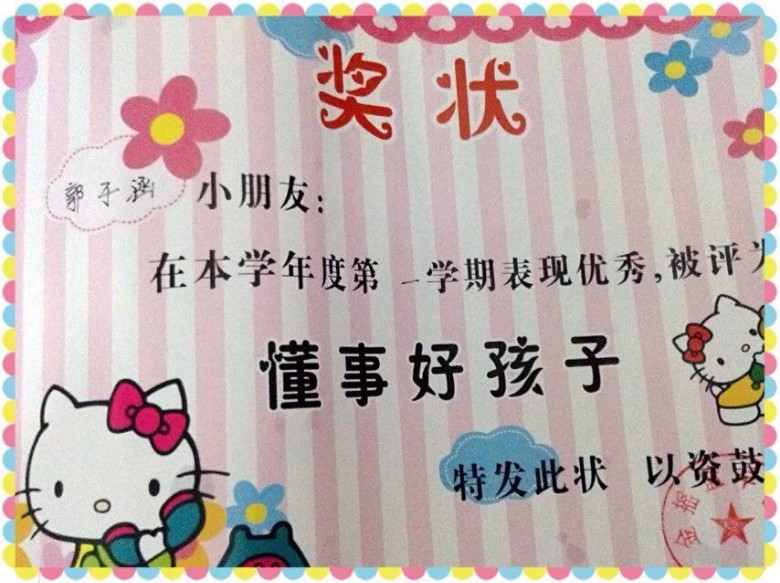 奖状
郭子涵 小朋友:
在本学年度第一学期表现优秀,被评为
懂事好孩子
特发此状 以资鼓